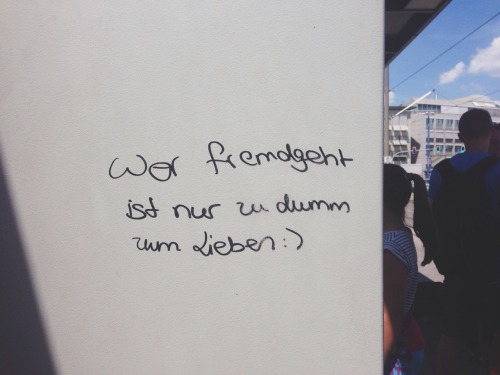 Wer fremdgeht
ist nur zu dumm
zum Lieben:)